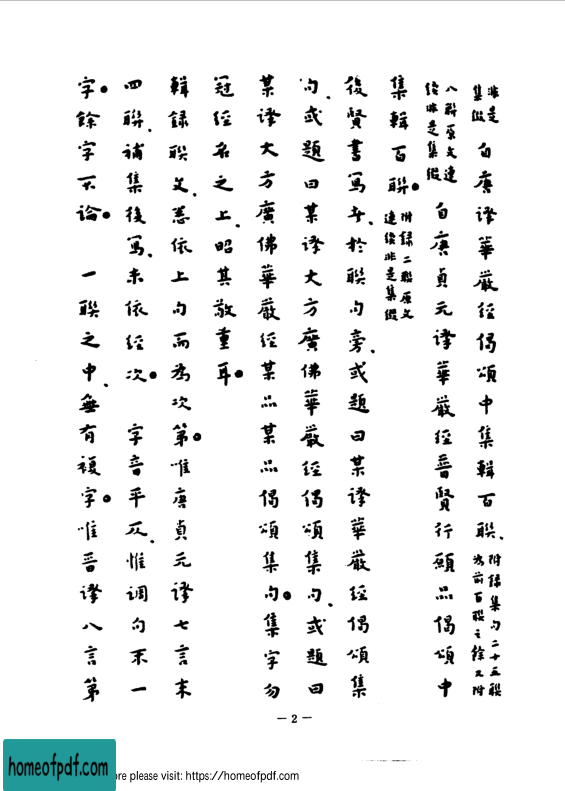 非是
集綴
自唐譯華嚴經偈頌中集輯百聯、
附錄集句二十五聯
為前百聯之餘又附
八聯原文連
續非是集綴
自唐貞元譯華嚴經普賢行願品偈頌中
集輯百聯。
附錄二聯原文
連續非是集綴
後賢書寫者、於聯句旁、或題曰某譯華嚴經偈頌集
句、或題曰某譯大方廣佛華嚴經偈頌集句、或題曰
某譯大方廣佛華嚴經某品某品偈頌集句。集字勿
冠經名之上、昭其敬重耳。
輯錄聯文、悉依上句而為次第。唯唐貞元譯七言末
四聯、補集後寫、未依經次。字音平仄、惟調句末一
字。餘字不論。一聯之中、無有複字。唯晉譯八言第
— 2 —
homeofpdf.com
re please visit: https://homeofpdf.com